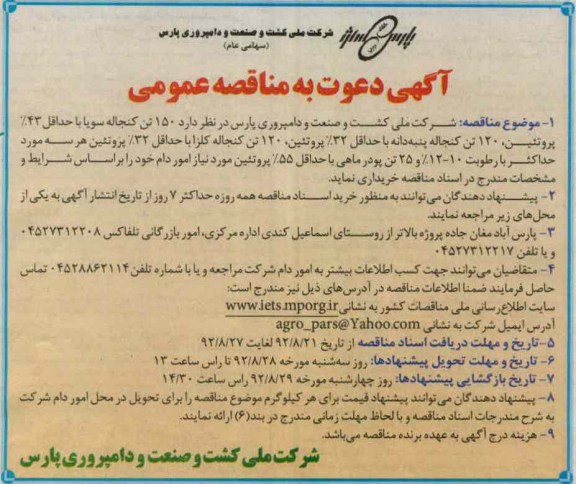 پارس
شرکت ملی کشت و صنعت و دامپروری پارس
(سهامی عام)
آگهی دعوت به مناقصه عمومی
۱- موضوع مناقصه: شرکت ملی کشت و صنعت و دامپروری پارس در نظر دارد ۱۵۰ تن کنجاله سویا با حداقل ۴۳٪
پروتئین، ۱۲۰ تن کنجاله پنبه‌دانه با حداقل ۳۲٪ پروتئین، ۱۲۰ تن کنجاله کلزا با حداقل ۳۲٪ پروتئین هر سه مورد
حداکثر با رطوبت ۱۰-۱۲٪ و ۲۵ تن پودر ماهی با حداقل ۵۵٪ پروتئین مورد نیاز امور دام خود را براساس شرایط و
مشخصات مندرج در اسناد مناقصه خریداری نماید.
۲- پیشنهاد دهندگان می‌توانند به منظور خرید اسناد مناقصه همه روزه حداکثر ۷ روز از تاریخ انتشار آگهی به یکی از
محل‌های زیر مراجعه نمایند.
۳- پارس آباد مغان جاده پروژه بالاتر از روستای اسماعیل کندی اداره مرکزی، امور بازرگانی تلفاکس ۰۴۵۲۷۳۱۲۲۰۸
و یا تلفن ۰۴۵۲۷۳۱۲۲۱۷
۴- متقاضیان می‌توانند جهت کسب اطلاعات بیشتر به امور دام شرکت مراجعه و یا با شماره تلفن ۰۴۵۲۸۸۶۲۱۱۴ تماس
حاصل فرمایند ضمنا اطلاعات مناقصه در آدرس‌های ذیل نیز مندرج است:
سایت اطلاع‌رسانی ملی مناقصات کشور به نشانی www.iets.mporg.ir
آدرس ایمیل شرکت به نشانی agro_pars@Yahoo.com
۵- تاریخ و مهلت دریافت اسناد مناقصه از تاریخ ۹۲/۸/۲۱ لغایت ۹۲/۸/۲۷
۶- تاریخ و مهلت تحویل پیشنهادها: روز سه‌شنبه مورخه ۹۲/۸/۲۸ تا راس ساعت ۱۳
۷- تاریخ بازگشایی پیشنهادها: روز چهارشنبه مورخه ۹۲/۸/۲۹ راس ساعت ۱۴/۳۰
۸- پیشنهاد دهندگان می‌توانند پیشنهاد قیمت برای هر کیلوگرم موضوع مناقصه را برای تحویل در محل امور دام شرکت
به شرح مندرجات اسناد مناقصه و با لحاظ مهلت زمانی مندرج در بند(۶) ارائه نمایند.
۹- هزینه درج آگهی به عهده برنده مناقصه می‌باشد.
شرکت ملی کشت و صنعت و دامپروری پارس